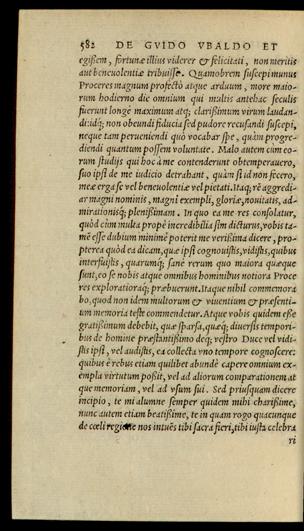 582 DE GVIDO VBALDO ET
egissem, fortunæ illius viderer & felicitati, non meritis
aut beneuolentiæ tribuisse. Quamobrem suscepi munus
Proceres magnum profectò atque arduum, more maio-
rum hodierno die omnium qui multis antehac seculis
fuerunt longè maximum atq; clarissimum virum laudan-
di: idq; non obeundi fiducia sed pudore recusandi suscepi,
neque tam perueniendi quò vocabar spe, quàm progre-
diendi quantum possem voluntate. Malo autem cùm eo-
rum studijs qui hoc à me contenderunt obtemperauero,
suo ipsi de me iudicio detrahant, quàm si id non fecero,
meæ erga se vel beneuolentiæ vel pietati. Itaq; rē aggredi-
ar magni nominis, magni exempli, gloriæ, nouitatis, ad-
mirationisq; plenissimam. In quo ea me res consolatur,
quòd cùm multa propè incredibilia sim dicturus, vobis ta-
mē esse dubium minimè poterit me verissima dicere, pro-
pterea quòd ea dicam, quæ ipsi cognouistis, vidistis, quibus
interfuistis, quarumq; sanè rerum quo maiora quæque
sunt, eo se nobis atque omnibus hominibus notiora Proce
res exploratioraq; præbuerunt. Itaque nihil commemora
bo, quod non idem multorum & viuentium & præsenti-
um memoria teste commendetur. Atque vobis quidem esse
gratissimum debebit, quæ sparsa, quæq; diuersis tempori-
bus de homine præstantissimo deq; vestro Duce vel vidi-
stis ipsi, vel audistis, ea collecta vno tempore cognoscere:
quibus è rebus etiam quilibet abundè capere omnium ex-
empla virtutum possit, vel ad aliorum comparationem at
que memoriam, vel ad vsum sui. Sed priusquam dicere
incipio, te mi alumne semper quidem mihi charissime,
nunc autem etiam beatissime, te inquam rogo quacunque
de cœli regione nos intuēs tibi sacra fieri, tibi iusta celebra
ri